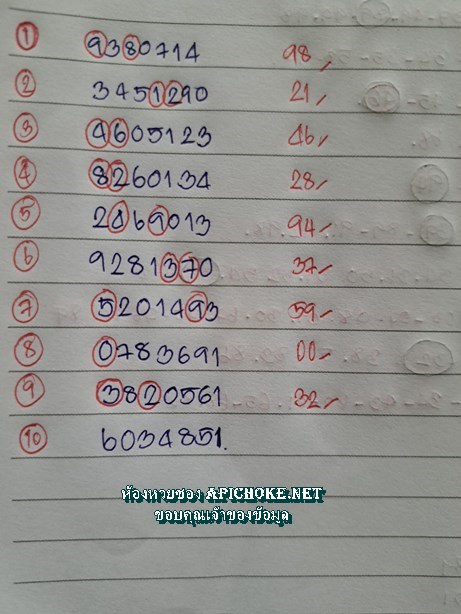 1 9380714 98
2 3451290 21
3 4605123 46
4 8260134 28
5 2469013 94
6 9281370 37
7 5201493 59
8 0783691 00
9 3820561 32
10 6034851.
ห้องหวยซอง APICHOKE.NET
ขอบคุณเจ้าของข้อมูล